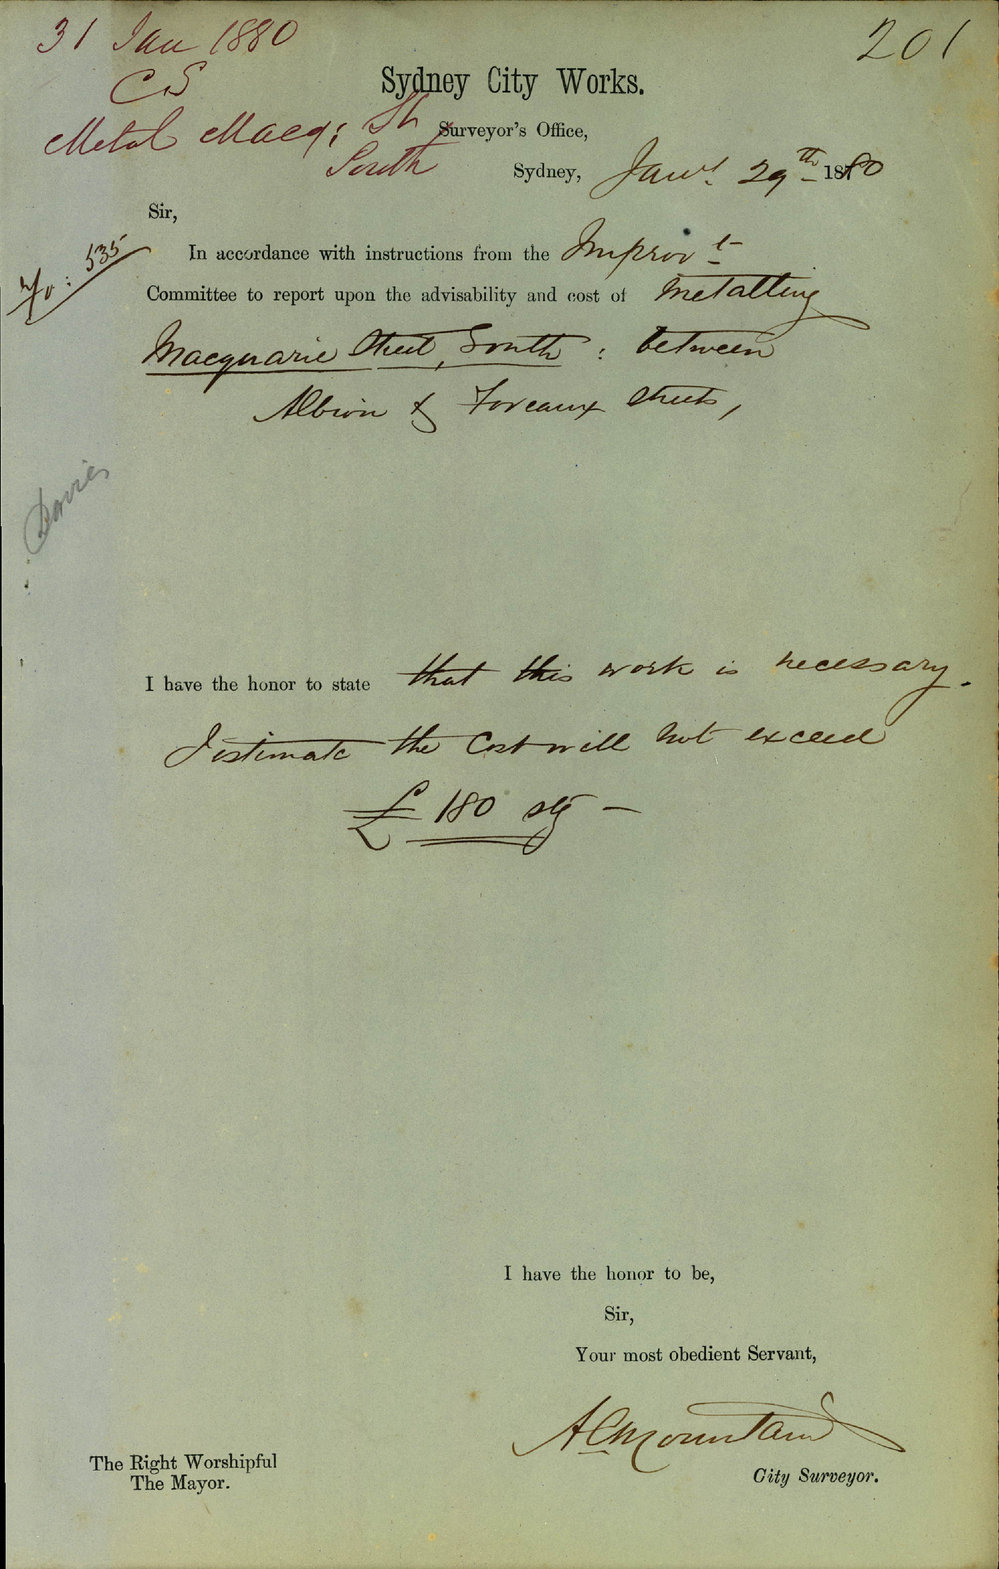 31 Jan 1880
201
CS
Sydney City Works.
Metal Macq: St
South
Surveyor's Office,
Sydney, Jany. 29th 1880
Sir,
No: 535
In accordance with instructions from the Improvt
Committee to report upon the advisability and cost of Metalling
Macquarie Street, South: between
Albion & Foveaux Streets,
Davies
I have the honor to state that this work is necessary.
I estimate the Cost will not exceed
£180 stg —
I have the honor to be,
Sir,
Your most obedient Servant,
A C Mountain
City Surveyor.
The Right Worshipful
The Mayor.